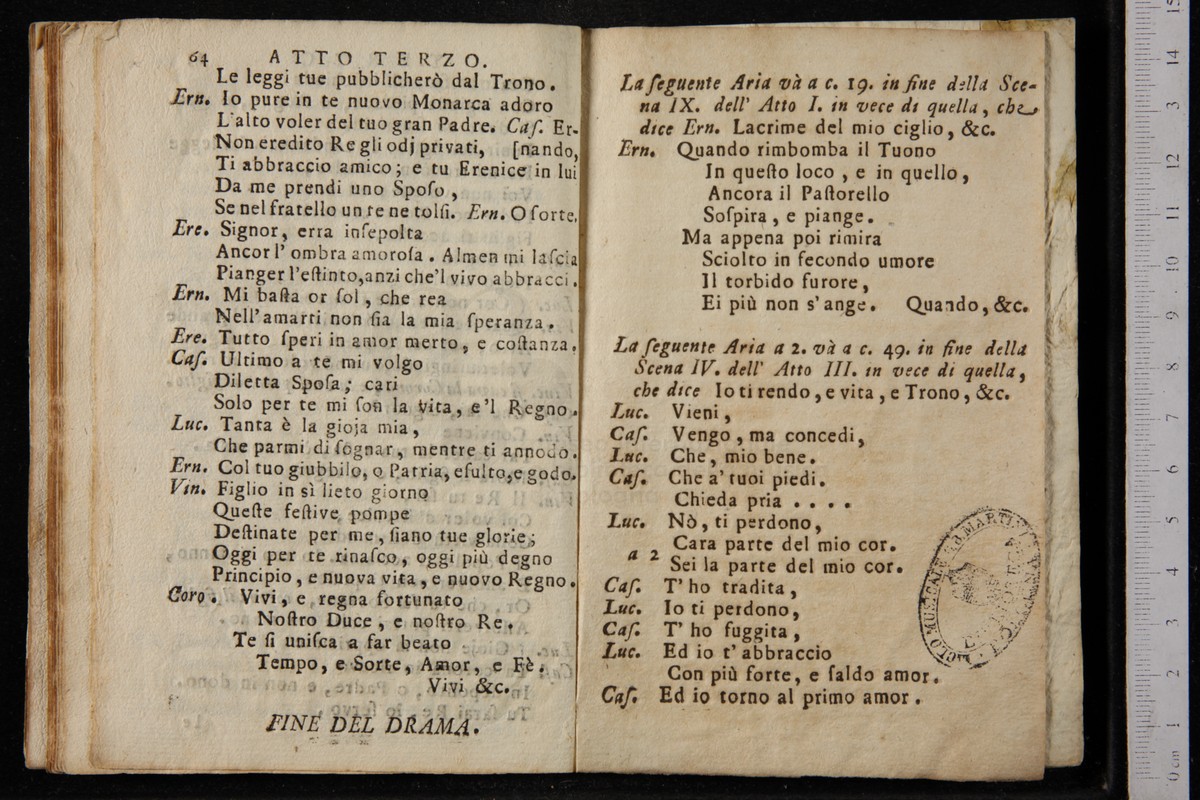 64 ATTO TERZO.
Le leggi tue pubblicherò dal Trono.
Ern. Io pure in te nuovo Monarca adoro
L'alto voler del tuo gran Padre. Caſ. Er-
Non eredito Re gli odj privati, [nando,
Ti abbraccio amico; e tu Erenice in lui
Da me prendi uno Spoſo,
Se nel fratello un te ne tolſi. Ern. O ſorte,
Ere. Signor, erra inſepolta
Ancor l' ombra amoroſa. Almen mi laſcia
Pianger l'eſtinto, anzi che'l vivo abbracci.
Ern. Mi baſta or ſol, che rea
Nell'amarti non ſia la mia ſperanza.
Ere. Tutto ſperi in amor merto, e coſtanza.
Caſ. Ultimo a te mi volgo
Diletta Spoſa; cari
Solo per te mi ſon la Vita, e'l Regno.
Luc. Tanta è la gioja mia,
Che parmi di ſognar, mentre ti annodo.
Ern. Col tuo giubbilo, o Patria, eſulto, e godo.
Vin. Figlio in sì lieto giorno
Queſte feſtive pompe
Deſtinate per me, ſiano tue glorie;
Oggi per te rinaſco, oggi più degno
Principio, e nuova vita, e nuovo Regno.
Coro. Vivi, e regna fortunato
Noſtro Duce, e noſtro Re.
Te ſi uniſca a far beato
Tempo, e Sorte, Amor, e Fè.
Vivi &c.
FINE DEL DRAMA.
La ſeguente Aria và a c. 19. in fine della Sce-
na IX. dell' Atto I. in vece di quella, che
dice Ern. Lacrime del mio ciglio, &c.
Ern. Quando rimbomba il Tuono
In queſto loco, e in quello,
Ancora il Paſtorello
Soſpira, e piange.
Ma appena poi rimira
Sciolto in fecondo umore
Il torbido furore,
Ei più non s'ange. Quando, &c.
La ſeguente Aria a 2. và a c. 49. in fine della
Scena IV. dell' Atto III. in vece di quella,
che dice Io ti rendo, e vita, e Trono, &c.
Luc. Vieni,
Caſ. Vengo, ma concedi,
Luc. Che, mio bene.
Caſ. Che a' tuoi piedi.
Chieda pria . . . .
Luc. Nò, ti perdono,
a 2 Cara parte del mio cor.
Sei la parte del mio cor.
Caſ. T' ho tradita,
Luc. Io ti perdono,
Caſ. T' ho fuggita,
Luc. Ed io t' abbraccio
Con più forte, e ſaldo amor.
Caſ. Ed io torno al primo amor.